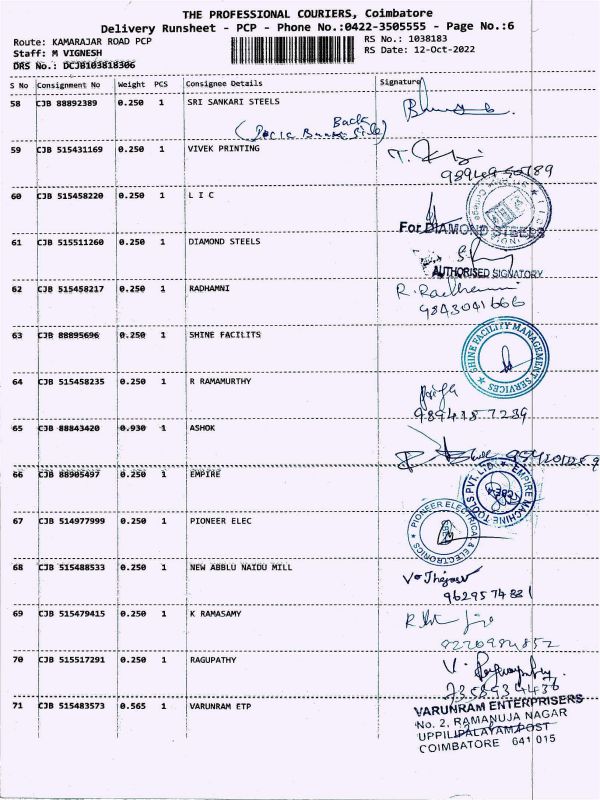 THE PROFESSIONAL COURIERS, Coimbatore
Delivery Runsheet - PCP - Phone No.:0422-3505555 - Page No.:6
Route: KAMARAJAR ROAD PCP
RS No.: 1038183
Staff: M VIGNESH
RS Date: 12-Oct-2022
DRS No.: DCJB103818306
S No Consignment No Weight PCS Consignee Details Signature
58 CJB 88892389 0.250 1 SRI SANKARI STEELS
Back
59 CJB 515431169 0.250 1 VIVEK PRINTING
60 CJB 515458220 0.250 1 L I C
For DIAMOND STEELS
61 CJB 515511260 0.250 1 DIAMOND STEELS
AUTHORISED SIGNATORY
62 CJB 515458217 0.250 1 RADHAMNI
R. Radhamni
9843041666
63 CJB 88895696 0.250 1 SHINE FACILITS
SHINE FACILITY MANAGEMENT SERVICES
64 CJB 515458235 0.250 1 R RAMAMURTHY
9894187239
65 CJB 88843420 0.930 1 ASHOK
66 CJB 88905497 0.250 1 EMPIRE
EMPIRE MACHINE TOOLS PVT. LTD.
CBE-4
67 CJB 514977999 0.250 1 PIONEER ELEC
PIONEER ELECTRICAL & ELECTRONICS
68 CJB 515488533 0.250 1 NEW ABBLU NAIDU MILL
9629574881
69 CJB 515479415 0.250 1 K RAMASAMY
8220984852
70 CJB 515517291 0.250 1 RAGUPATHY
7358934436
71 CJB 515483573 0.565 1 VARUNRAM ETP
VARUNRAM ENTERPRISERS
No. 2, RAMANUJA NAGAR
UPPILIPALAYAM POST
COIMBATORE 641 015